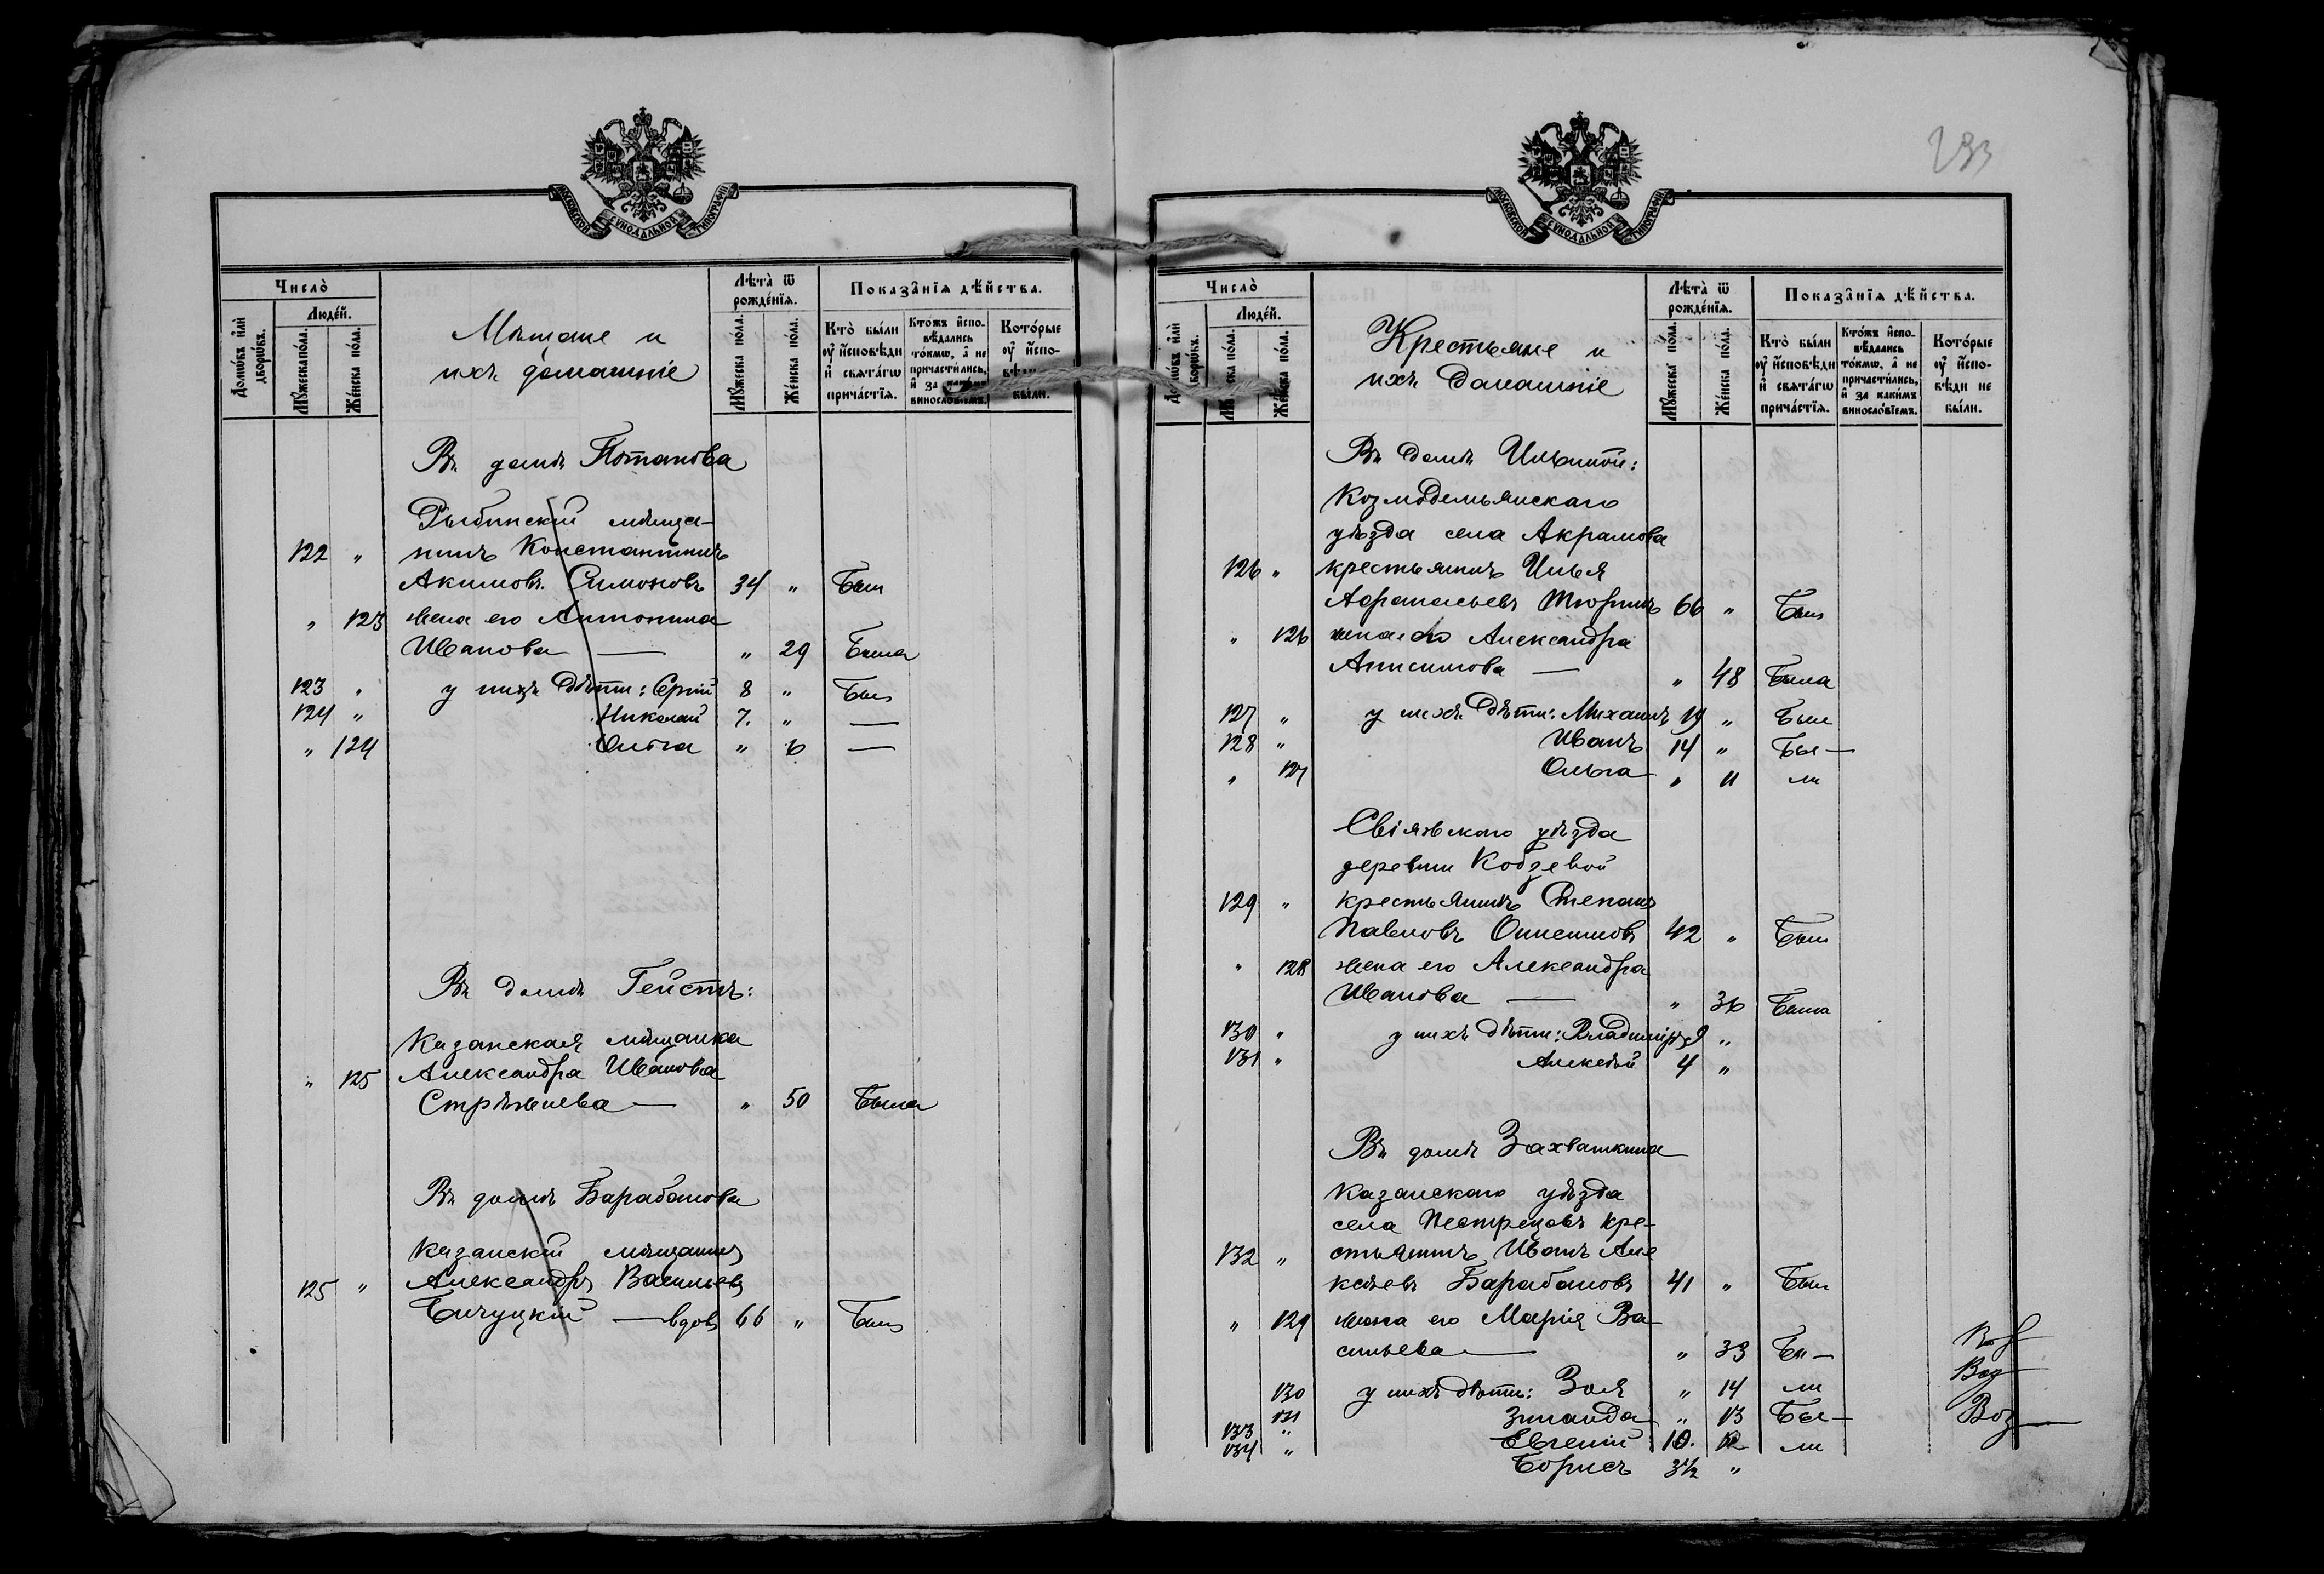 МОСКОВСКОЙ СѴНОДАЛЬНОЙ ТИПОГРАФІИ
Число̀
Домѡ́въ и҆лѝ дворѡ́въ.
Люде́й.
Мꙋ́жеска по́ла.
Же́нска по́ла.
Мѣщане и
ихъ домашніе
Лѣ́та ѿ рожде́нїя.
Мꙋ́жеска по́ла.
Же́нска по́ла.
Показа̑нїѧ дѣ́йства.
Кто̀ бы́ли ᲂу҆ и҆сповѣ́ди и҆ свѧта́гѡ прича́стїѧ.
Кто́жъ и҆спо-вѣ́дались то́кмѡ, а҆ не причасти́лись, и҆ за каки́мъ винословїемъ.
Кото́рые ᲂу҆ и҆спо-вѣ́ди не бы́ли.
Въ домѣ Потапова
Рыбинскій мѣща-
122 " нинъ Константинъ
Акимовъ Симоновъ 34 " Былъ
" 123 жена его Антонина
Иванова — " 29 Была
123 " у нихъ дѣти: Сергій 8 " Былъ
124 " Николай 7. " —
" 124 Ольга " 6 —
Въ домѣ Гейстъ:
Казанская мѣщанка
" 125 Александра Иванова
Стрѣжнева — " 50 Была
Въ домѣ Барабанова
Казанскій мѣщанинъ
125 " Александръ Васильевъ
Бичуцкій — вдовъ 66 " Былъ
233
МОСКОВСКОЙ СѴНОДАЛЬНОЙ ТИПОГРАФІИ
Число̀
Домѡ́въ и҆лѝ дворѡ́въ.
Люде́й.
Мꙋ́жеска по́ла.
Же́нска по́ла.
Крестьяне и
ихъ домашніе
Лѣ́та ѿ рожде́нїя.
Мꙋ́жеска по́ла.
Же́нска по́ла.
Показа̑нїѧ дѣ́йства.
Кто̀ бы́ли ᲂу҆ и҆сповѣ́ди и҆ свѧта́гѡ прича́стїѧ.
Кто́жъ и҆спо-вѣ́дались то́кмѡ, а҆ не причасти́лись, и҆ за каки́мъ винословїемъ.
Кото́рые ᲂу҆ и҆спо-вѣ́ди не бы́ли.
Въ домѣ Ильиной:
Козмодемьянскаго
уѣзда села Акрамова
126 " крестьянинъ Илья
Афанасьевъ Тюринъ 66 " Былъ
" 126 жена его Александра
Анисимова — " 48 Была
127 " у нихъ дѣти: Михаилъ 19 " Былъ
128 " Иванъ 14 " Бы—
" 127 Ольга " 11 ли
Свіяжскаго уѣзда
деревни Кобзевой
129 " крестьянинъ Степанъ
Павловъ 42 " Былъ
" 128 жена его Александра
Иванова — " 36 Была
130 " у нихъ дѣти: Владиміръ 9 "
131 " Алексѣй 4 "
Въ домѣ Захваткина
Казанскаго уѣзда
села Пестрецовъ кре-
132 " стьянинъ Иванъ Але
ксѣевъ Барабановъ 41 " Былъ
" 129 жена его Марія Ва
сильева — " 33 Бы—
130 у нихъ дѣти: Зоя " 14 ли
131 Зинаида " 13 Бы—
133 " Евгеній 10. ли
134 " Борисъ 3½ "